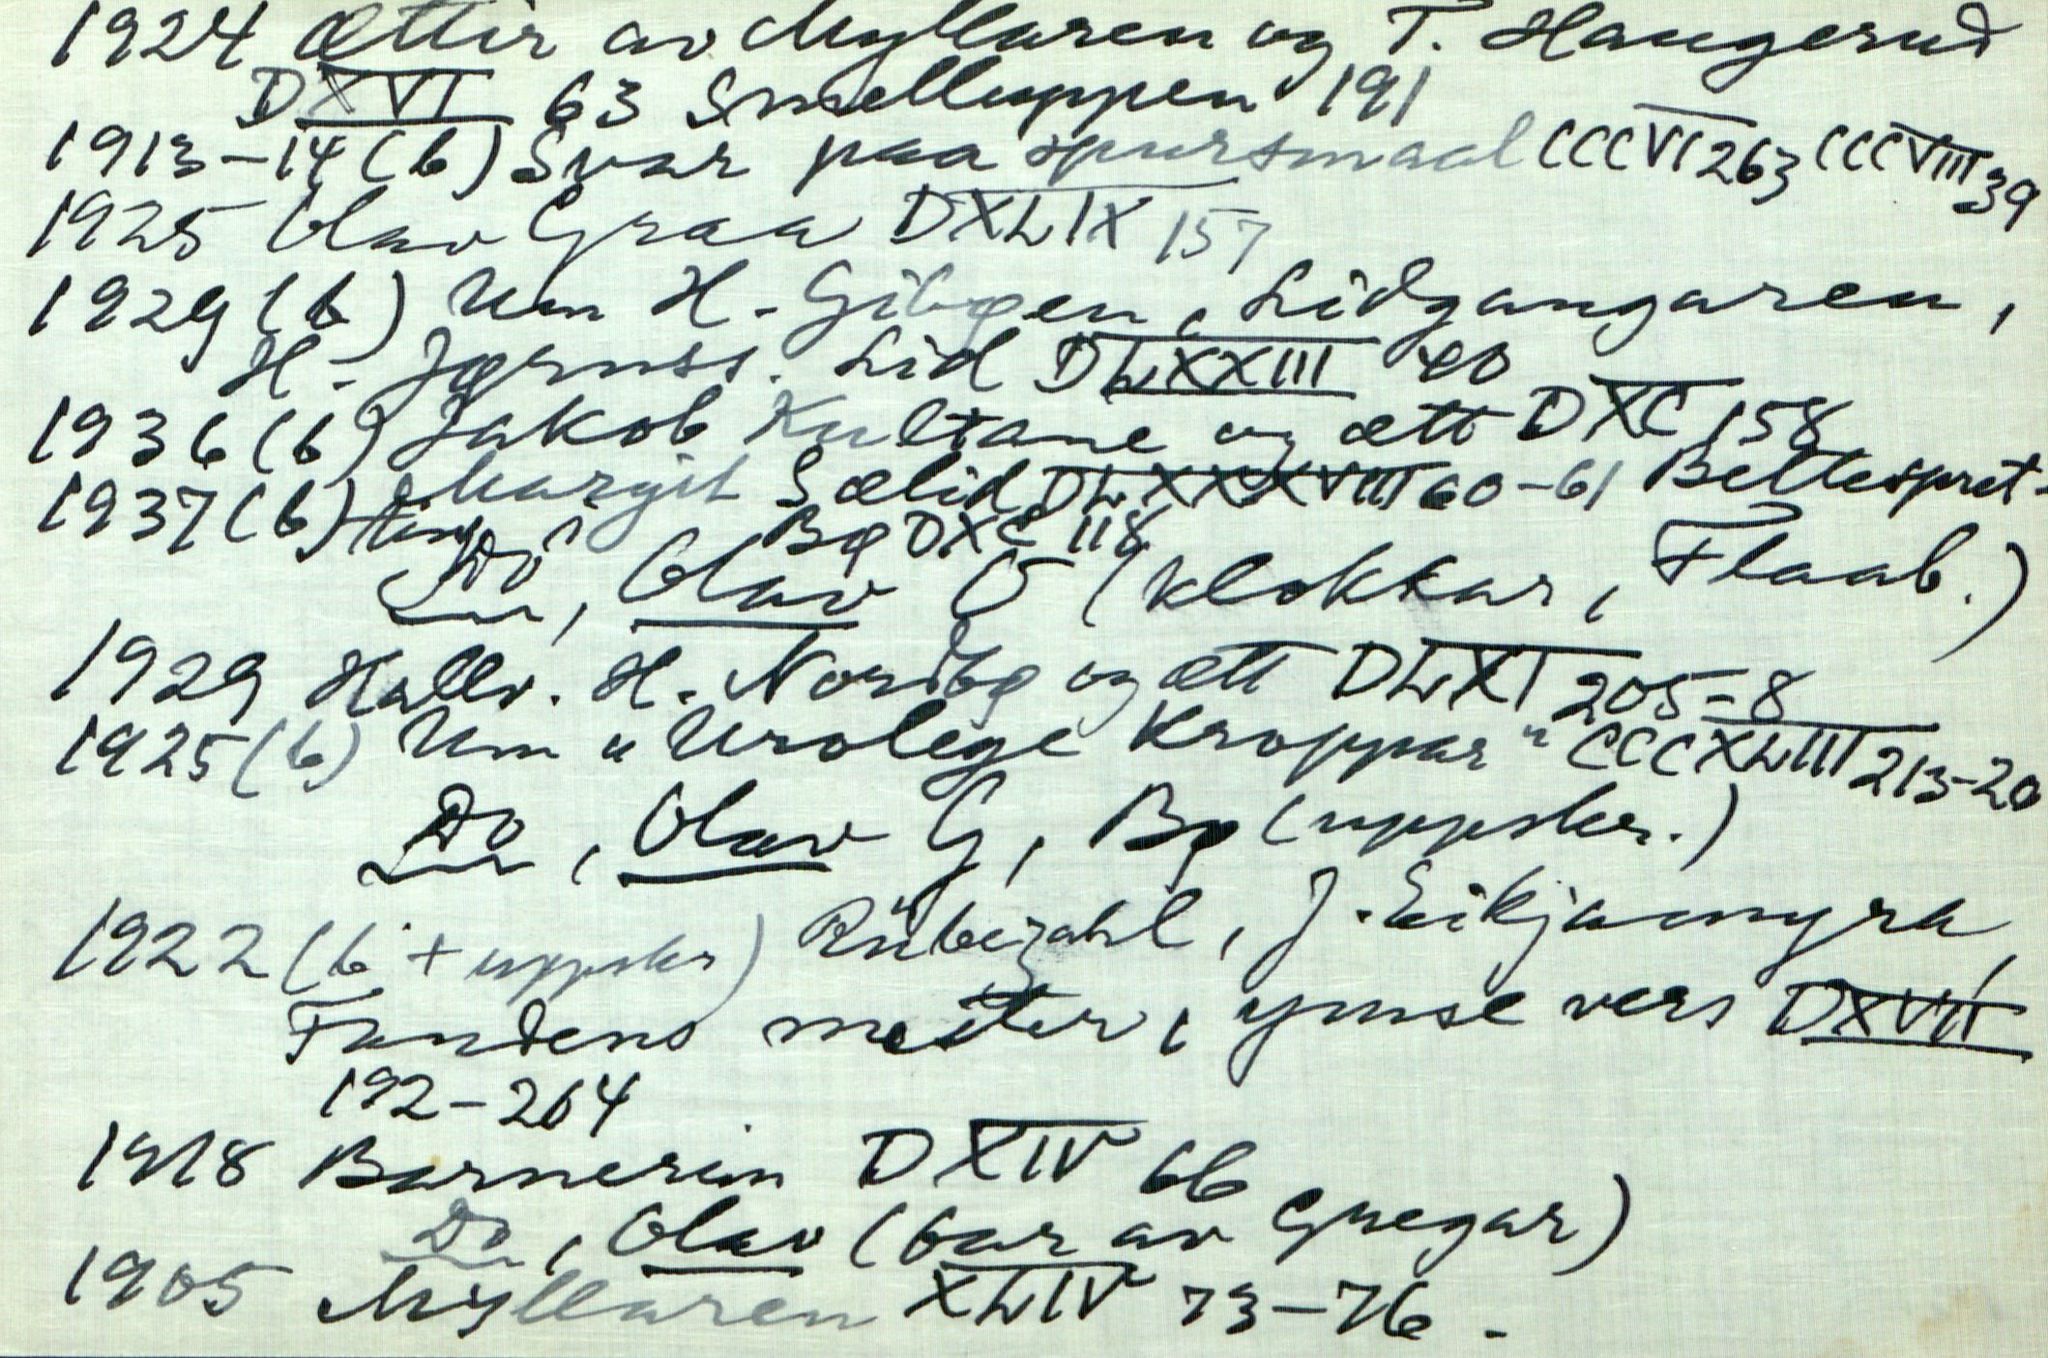 1924 Ættir av Myllaren og T. Haugerud
DXVI 63 Smelluppen 191
1913-14 (b) Svar paa spursmaal CCCVI 263 CCCVIII 39
1925 Olav Graa DXLIX 157
1929 (b) Um H. Gibøen, Lidgangaren,
H. Jørnss. Lid DLXXIII 40
1936 (b) Jakob Kultane og ætt DXC 158
1937 (b) Margit Sælid DLXXXVIII 60-61 Beltespret-
ting Bø DXC 118
Do, Olav O (klokkar, Flaab.)
1929 Hallv. H. Nordbø og ætt DLXI 205-8
1925 (b) Um "Urolege Kroppar" CCCXLIII 213-20
Do, Olav G, Bø (uppskr.)
1922 (b + uppskr) Rübezahl, J. Eikjamyra,
Fandens møter, ymse vers DXVII
192-264
1918 Barnerim DXIV 66
Do, Olav (bar av Gregar)
1905 Myllaren XLIV 73-76.